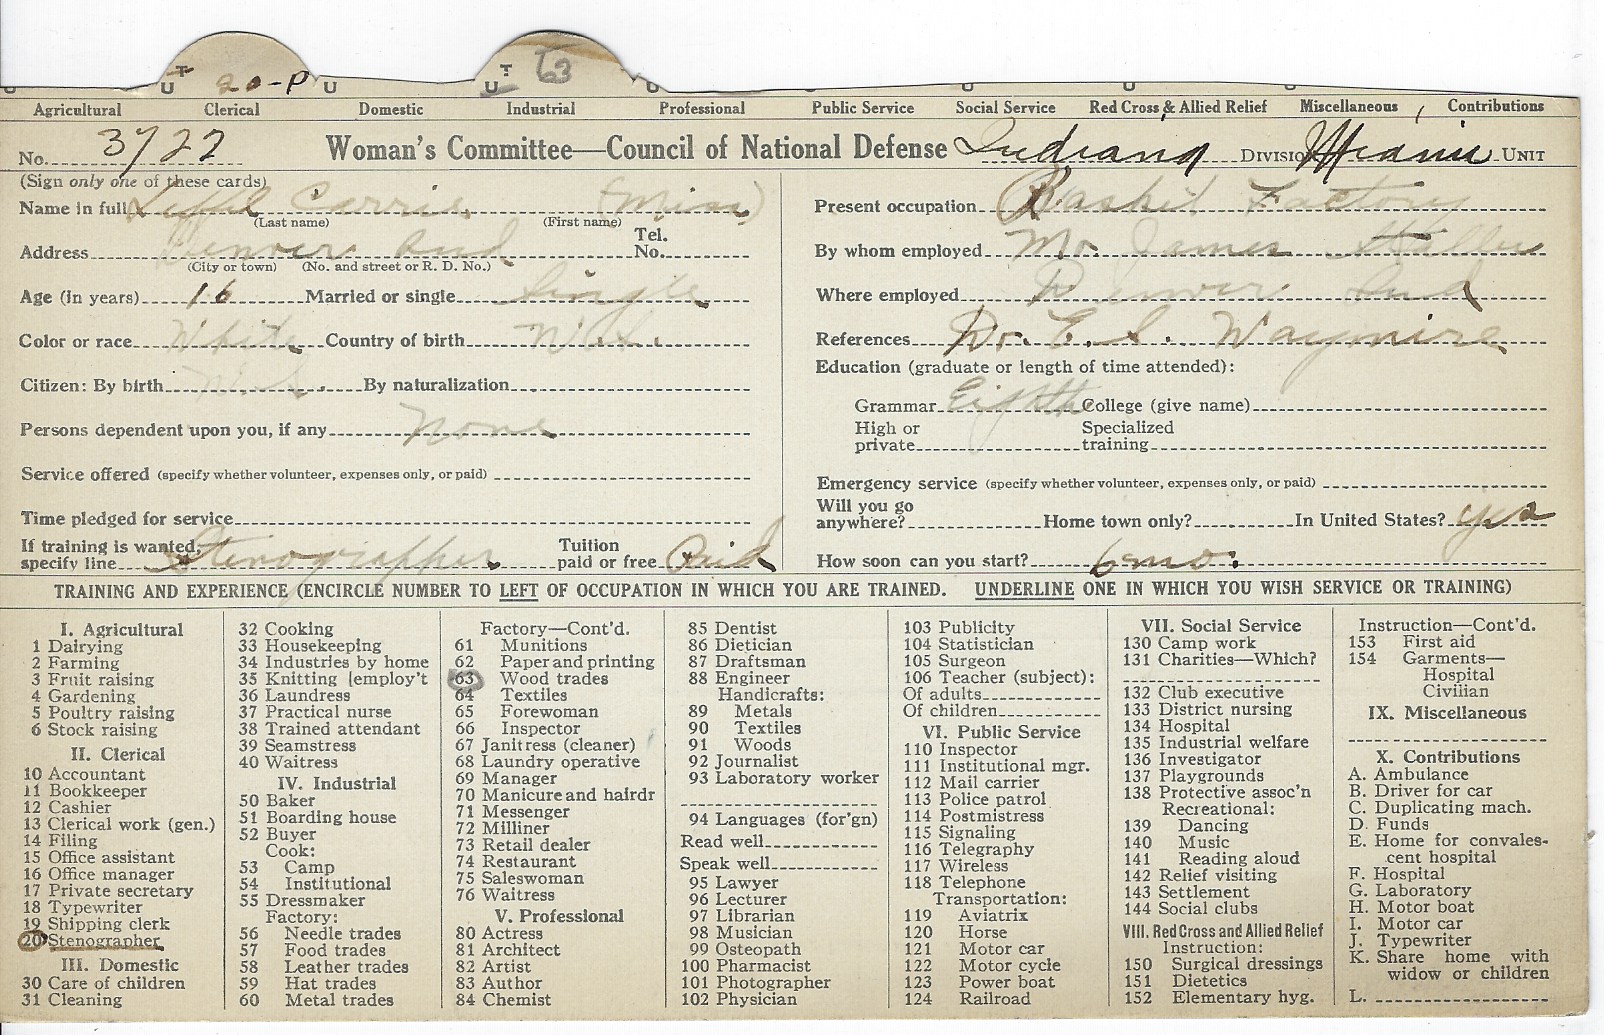 U T 20-P U U T 63
Agricultural Clerical Domestic Industrial Professional Public Service Social Service Red Cross & Allied Relief Miscellaneous Contributions
No. 3722 Woman's Committee—Council of National Defense Indiana Division Miami Unit
(Sign only one of these cards)
Name in full Carrie (Miss)
(Last name) (First name)
Address Denver Ind Tel. No.
(City or town) (No. and street or R. D. No.)
Age (in years) 16 Married or single Single
Color or race White Country of birth
Citizen: By birth By naturalization
Persons dependent upon you, if any None
Service offered (specify whether volunteer, expenses only, or paid)
Time pledged for service
If training is wanted, specify line Stenographer Tuition paid or free Paid
Present occupation Basket Factory
By whom employed Mr. James
Where employed Denver Ind
References Dr. E. S. Waymire
Education (graduate or length of time attended):
Grammar Eighth College (give name)
High or private Specialized training
Emergency service (specify whether volunteer, expenses only, or paid)
Will you go anywhere? Home town only? In United States? yes
How soon can you start? 6 mo.
TRAINING AND EXPERIENCE (ENCIRCLE NUMBER TO LEFT OF OCCUPATION IN WHICH YOU ARE TRAINED. UNDERLINE ONE IN WHICH YOU WISH SERVICE OR TRAINING)
I. Agricultural
1 Dairying
2 Farming
3 Fruit raising
4 Gardening
5 Poultry raising
6 Stock raising
II. Clerical
10 Accountant
11 Bookkeeper
12 Cashier
13 Clerical work (gen.)
14 Filing
15 Office assistant
16 Office manager
17 Private secretary
18 Typewriter
19 Shipping clerk
20 Stenographer
III. Domestic
30 Care of children
31 Cleaning
32 Cooking
33 Housekeeping
34 Industries by home
35 Knitting [employ't
36 Laundress
37 Practical nurse
38 Trained attendant
39 Seamstress
40 Waitress
IV. Industrial
50 Baker
51 Boarding house
52 Buyer
Cook:
53 Camp
54 Institutional
55 Dressmaker
Factory:
56 Needle trades
57 Food trades
58 Leather trades
59 Hat trades
60 Metal trades
Factory—Cont'd.
61 Munitions
62 Paper and printing
63 Wood trades
64 Textiles
65 Forewoman
66 Inspector
67 Janitress (cleaner)
68 Laundry operative
69 Manager
70 Manicure and hairdr
71 Messenger
72 Milliner
73 Retail dealer
74 Restaurant
75 Saleswoman
76 Waitress
V. Professional
80 Actress
81 Architect
82 Artist
83 Author
84 Chemist
85 Dentist
86 Dietician
87 Draftsman
88 Engineer
Handicrafts:
89 Metals
90 Textiles
91 Woods
92 Journalist
93 Laboratory worker
94 Languages (for'gn)
Read well
Speak well
95 Lawyer
96 Lecturer
97 Librarian
98 Musician
99 Osteopath
100 Pharmacist
101 Photographer
102 Physician
103 Publicity
104 Statistician
105 Surgeon
106 Teacher (subject):
Of adults
Of children
VI. Public Service
110 Inspector
111 Institutional mgr.
112 Mail carrier
113 Police patrol
114 Postmistress
115 Signaling
116 Telegraphy
117 Wireless
118 Telephone
Transportation:
119 Aviatrix
120 Horse
121 Motor car
122 Motor cycle
123 Power boat
124 Railroad
VII. Social Service
130 Camp work
131 Charities—Which?
132 Club executive
133 District nursing
134 Hospital
135 Industrial welfare
136 Investigator
137 Playgrounds
138 Protective assoc'n
Recreational:
139 Dancing
140 Music
141 Reading aloud
142 Relief visiting
143 Settlement
144 Social clubs
VIII. Red Cross and Allied Relief
Instruction:
150 Surgical dressings
151 Dietetics
152 Elementary hyg.
Instruction—Cont'd.
153 First aid
154 Garments—
Hospital
Civilian
IX. Miscellaneous
X. Contributions
A. Ambulance
B. Driver for car
C. Duplicating mach.
D. Funds
E. Home for convales-
cent hospital
F. Hospital
G. Laboratory
H. Motor boat
I. Motor car
J. Typewriter
K. Share home with
widow or children
L.